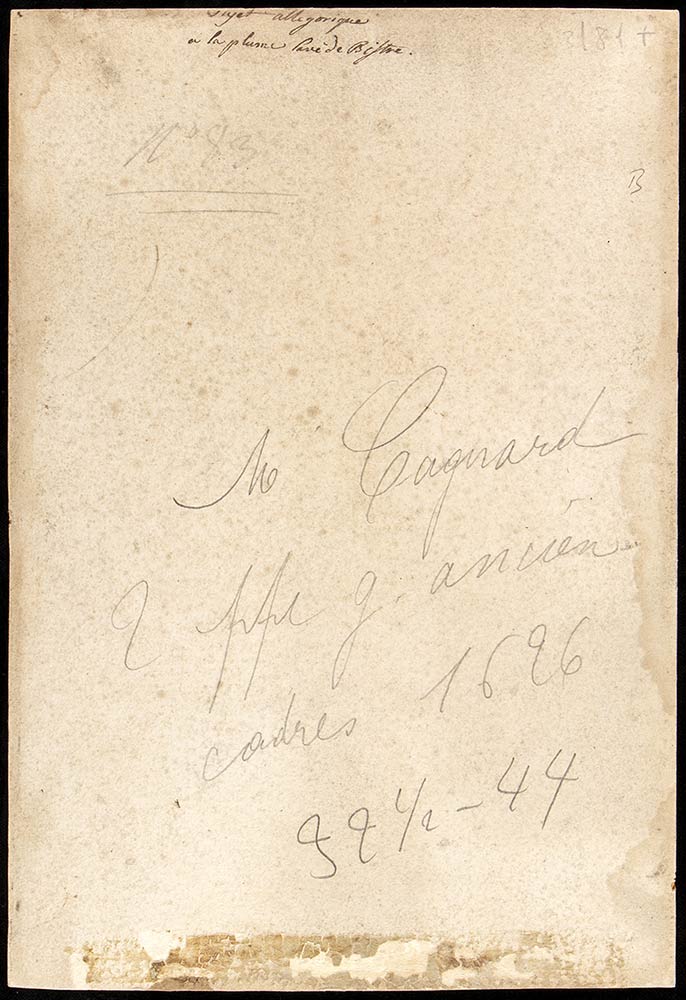 Sujet allegorique
a la plume lavé de Bistre.
3/81+
N° 83
B
Mr Cagnard
2 ppe g. ancien
cadres 1626
32 1/2 - 44